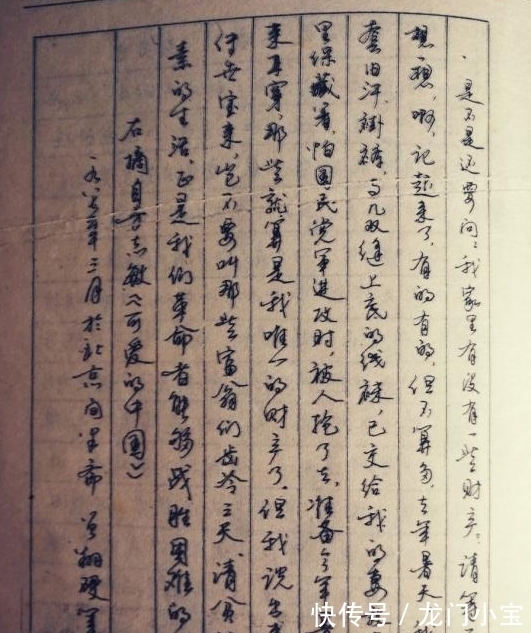 是不是还要问：我家里有没有一些财产？请等一
想一想，啊，记起来了，有的有的，但不算多。去年暑天
套旧汗褂裤，与几双缝上底的线袜，已交给我的妻
里保藏着，怕国民党军进攻时，被人抢了去，准备今年
来再穿，那些就算是我唯一的财产了。但我说出
传世宝来，岂不要叫那些富翁们齿冷三天，清贫
素的生活，正是我们革命者能够战胜困难的
右摘自方志敏《可爱的中国》
一九八 年三月于北京 翔硬笔
快传号/龙门小宝